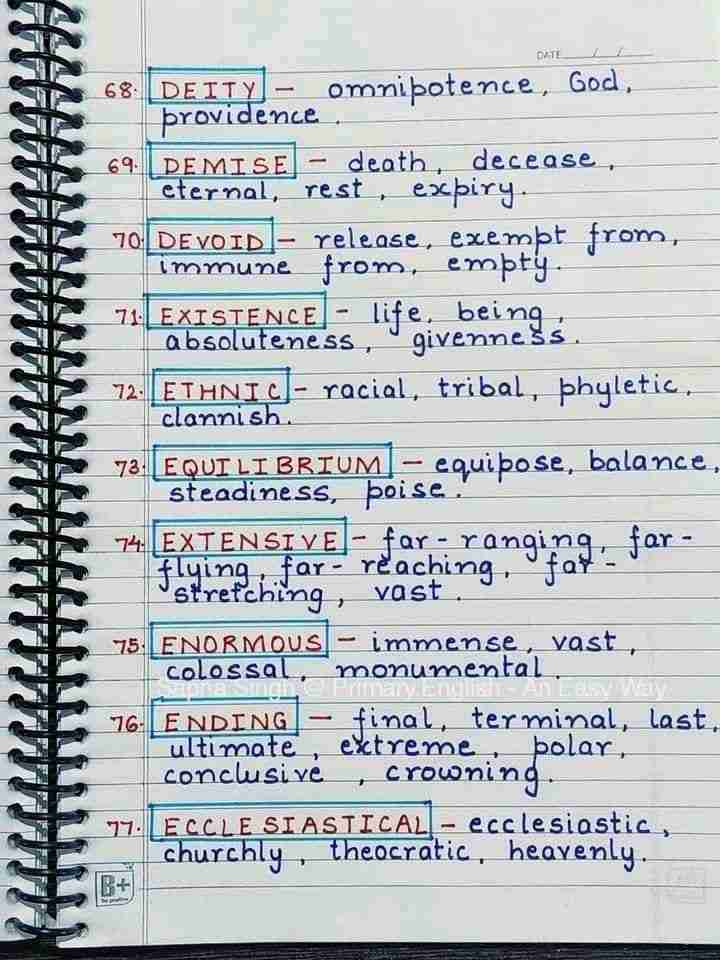 DATE / /
68. DEITY – omnipotence, God,
providence.
69. DEMISE – death, decease,
eternal, rest, expiry.
70. DEVOID – release, exempt from,
immune from, empty.
71. EXISTENCE – life, being,
absoluteness, givenness.
72. ETHNIC – racial, tribal, phyletic,
clannish.
73. EQUILIBRIUM – equipose, balance,
steadiness, poise.
74. EXTENSIVE – far-ranging, far-
flying, far-reaching, far-
stretching, vast.
75. ENORMOUS – immense, vast,
colossal, monumental.
Sapna Singh @ Primary English - An Easy Way
76. ENDING – final, terminal, last,
ultimate, extreme, polar,
conclusive, crowning.
77. ECCLESIASTICAL – ecclesiastic,
churchly, theocratic, heavenly.
B+
be positive